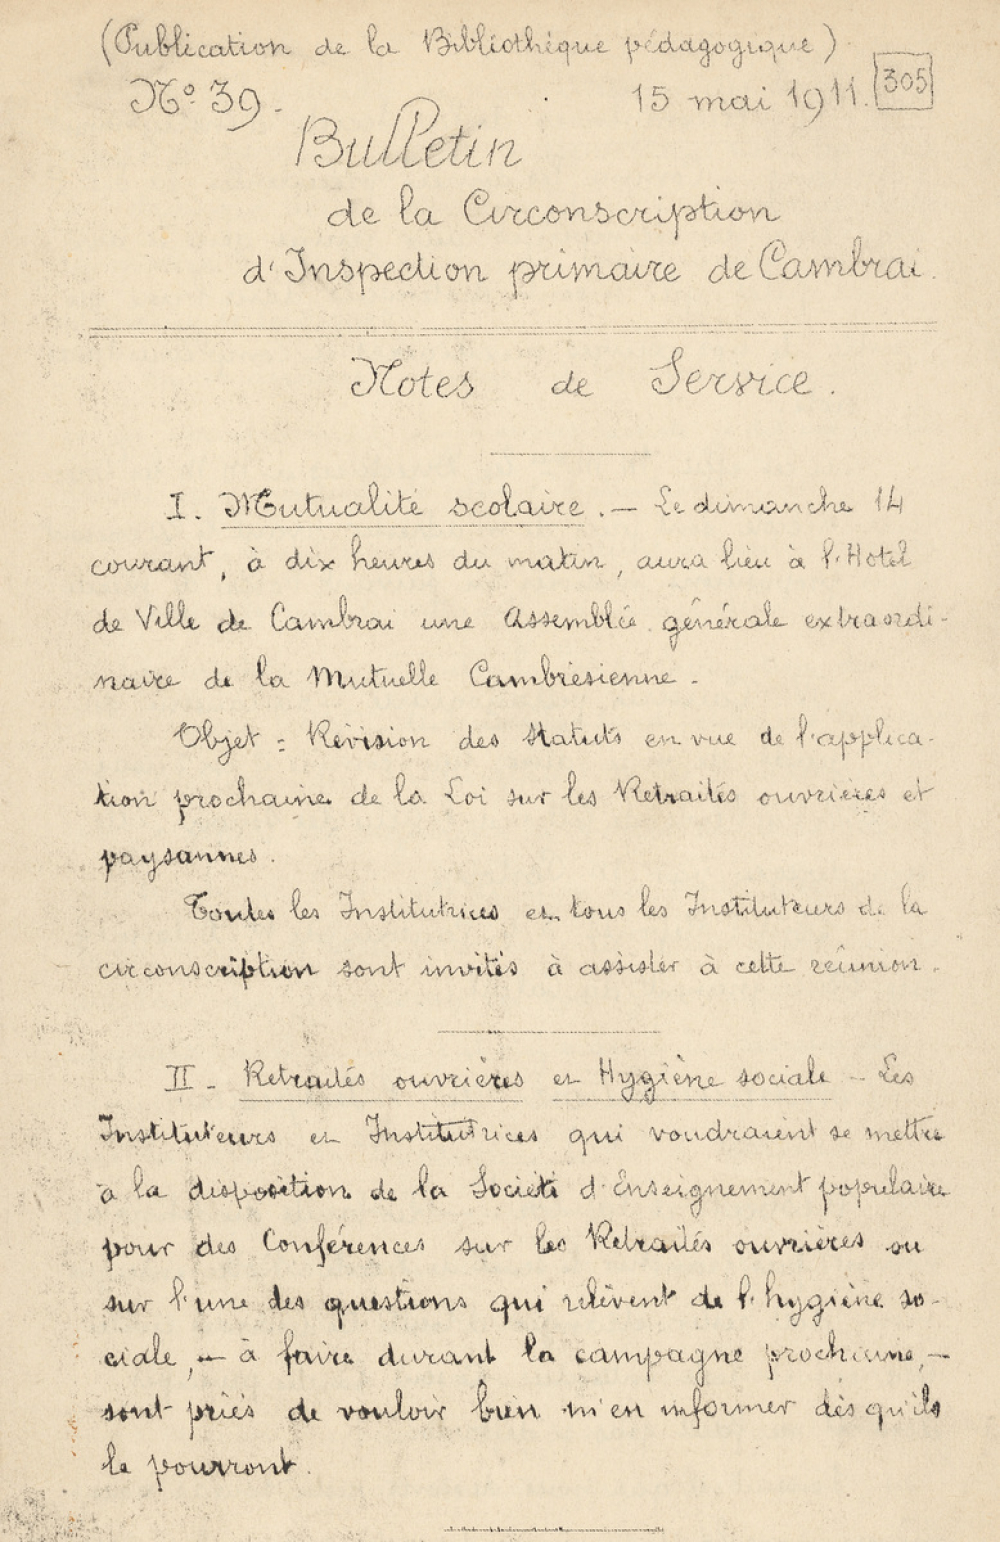 (Publication de la Bibliothèque pédagogique)
N° 39. 15 mai 1911. 305
Bulletin
de la Circonscription
d'Inspection primaire de Cambrai.
Notes de Service.
I. Mutualité scolaire. — Le dimanche 14
courant, à dix heures du matin, aura lieu à l'Hotel
de Ville de Cambrai une Assemblée générale extraordi-
naire de la Mutuelle Cambrésienne.
Objet : Révision des Statuts en vue de l'applica-
tion prochaine de la Loi sur les Retraites ouvrières et
paysannes.
Toutes les Institutrices et tous les Instituteurs de la
circonscription sont invités à assister à cette réunion.
II - Retraites ouvrières et Hygiène sociale - Les
Instituteurs et Institutrices qui voudraient se mettre
à la disposition de la Société d'Enseignement populaire
pour des Conférences sur les Retraites ouvrières ou
sur l'une des questions qui relèvent de l'hygiène so-
ciale, — à faire durant la campagne prochaine, —
sont priés de vouloir bien m'en informer dès qu'ils
le pourront.